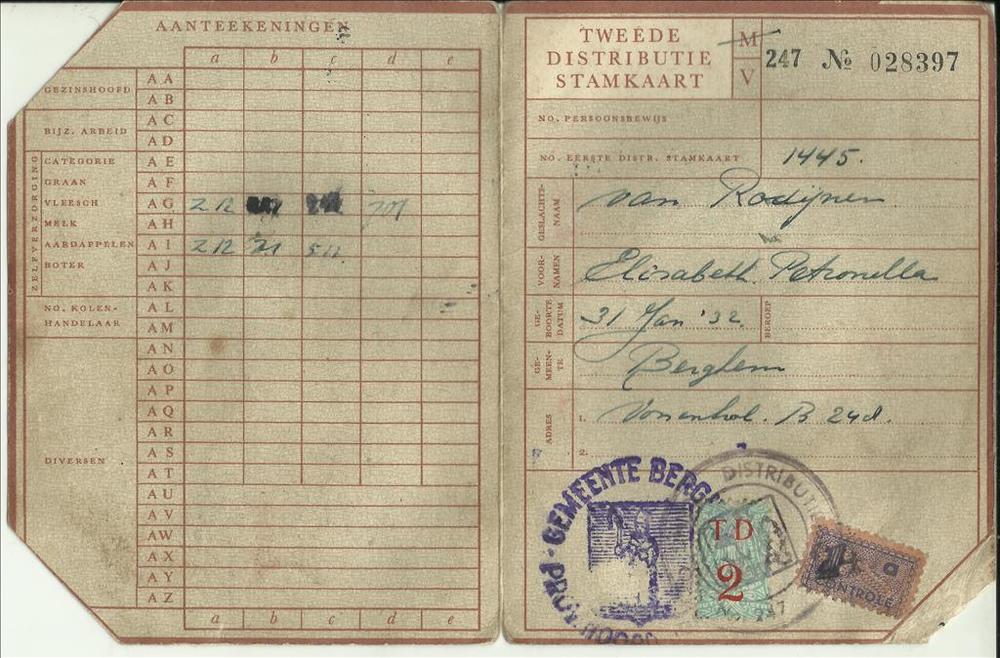 AANTEEKENINGEN
a b c d e
GEZINSHOOFD
AA
AB
BIJZ. ARBEID
AC
AD
ZELFVERZORGING
CATEGORIE
AE
GRAAN
AF
VLEESCH
AG
MELK
AH
AARDAPPELEN
AI
BOTER
AJ
AK
NO. KOLEN-
HANDELAAR
AL
AM
DIVERSEN
AN
AO
AP
AQ
AR
AS
AT
AU
AV
AW
AX
AY
AZ
a b c d e
TWEEDE
DISTRIBUTIE
STAMKAART
M
V
247 № 028397
NO. PERSOONSBEWIJS
NO. EERSTE DISTR. STAMKAART 1445.
GESLACHTS-
NAAM
van Rodijnen
VOOR-
NAMEN
Elisabeth Petronella
GE-
BOORTE
DATUM
31 Jan '32
BEROEP
GE-
MEEN-
TE
Berghem
ADRES
1. B 24d.
2.
GEMEENTE BERG
DISTRIBUTIE
TD
2
247